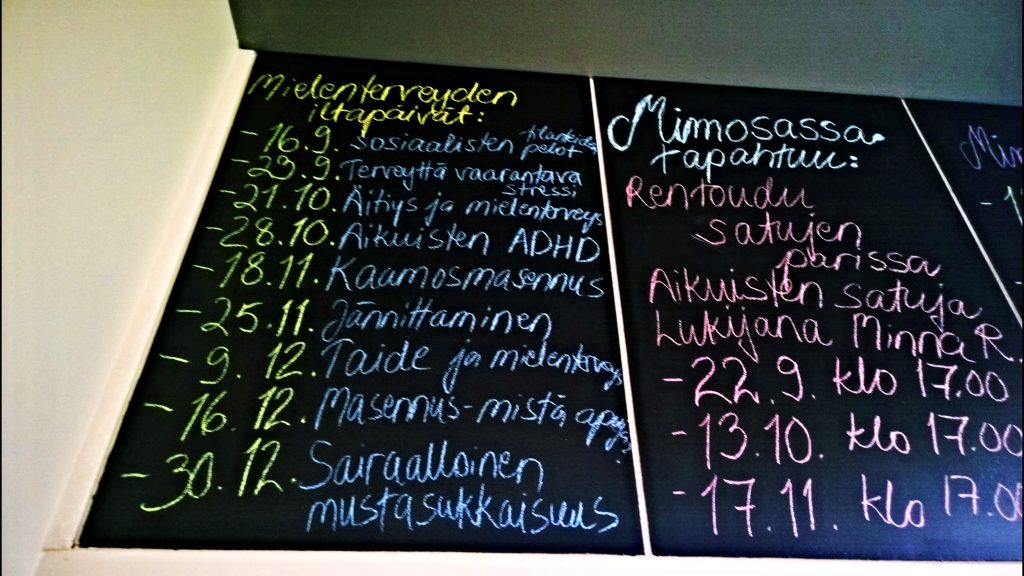 Mielenterveyden
iltapäivät:
- 16.9. Sosiaalisten tilanteiden
pelot
- 23.9. Terveyttä vaarantava
stressi
- 21.10. Äitiys ja mielenterveys
- 28.10. Aikuisten ADHD
- 18.11. Kaamosmasennus
- 25.11. Jännittäminen
- 9.12. Taide ja mielenterveys
- 16.12. Masennus-mistä apu
- 30.12. Sairaalloinen
mustasukkaisuus
Mimosassa
tapahtuu:
Rentoudu
satujen
parissa
Aikuisten satuja
Lukijana Minna R.
- 22.9. klo 17.00
- 13.10. klo 17.00
- 17.11. klo 17.0